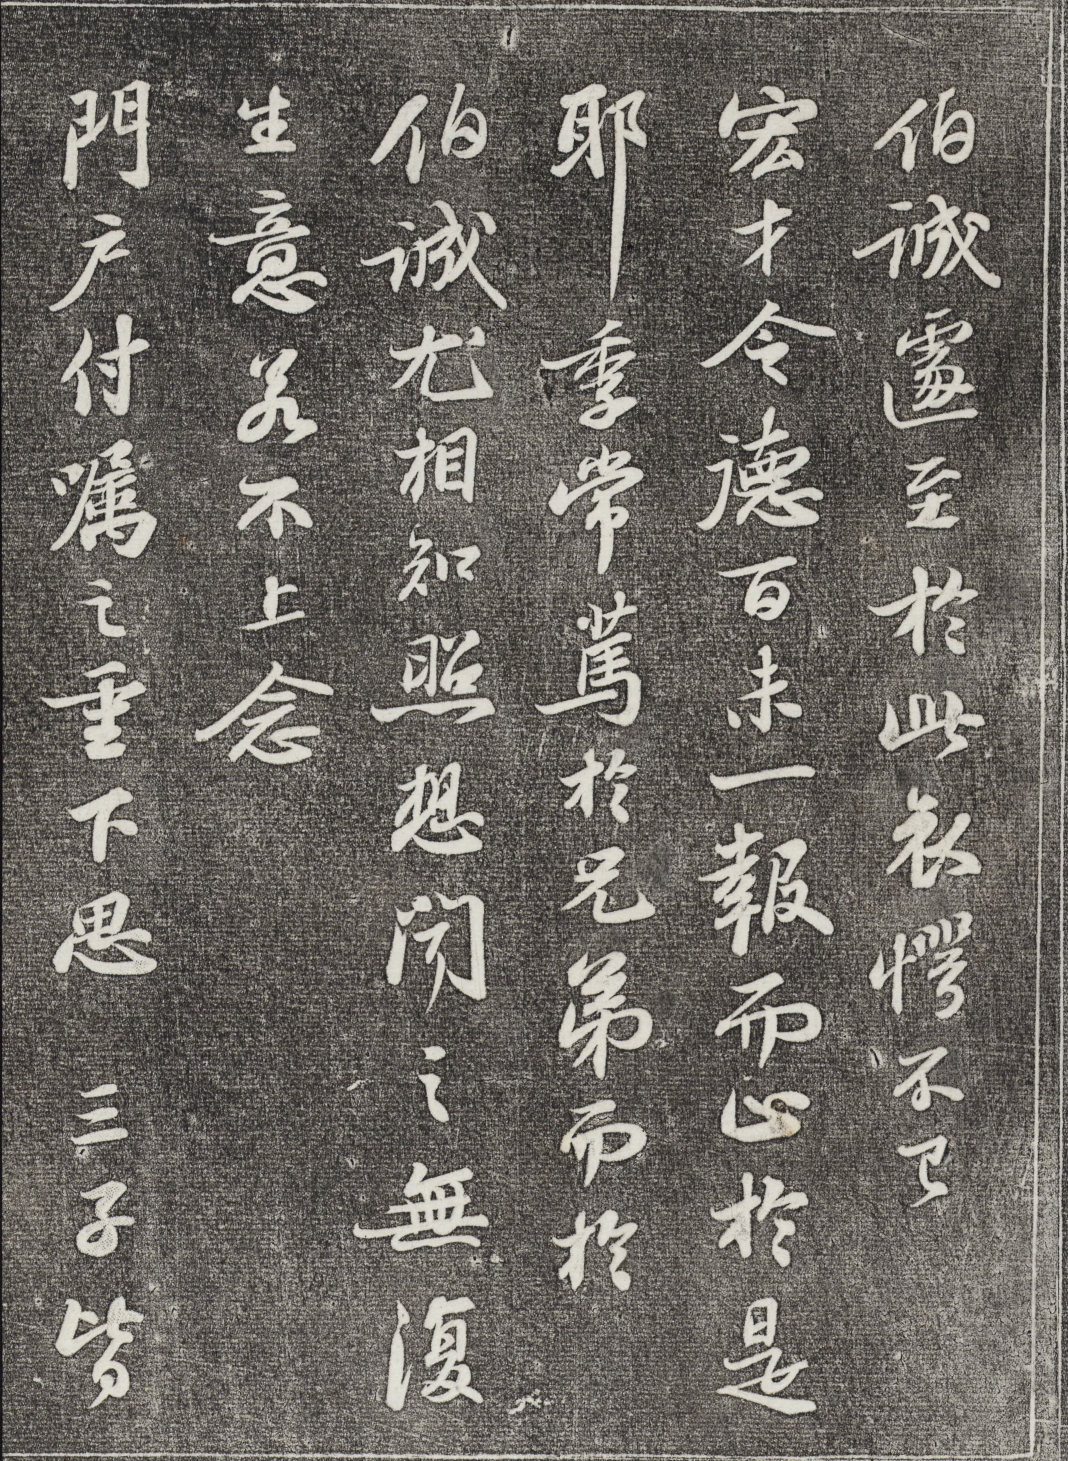 伯誠遽至於此哀愕不已
宏才令德百未一報而止於是
耶季常篤於兄弟而於
伯誠尤相知照想聞之無復
生意若不上念
門戶付囑之重下思三子皆